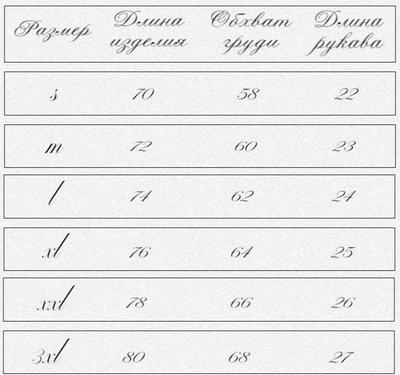 Размер Длина изделия Обхват груди Длина рукава
s 70 58 22
m 72 60 23
l 74 62 24
xl 76 64 25
xxl 78 66 26
3xl 80 68 27